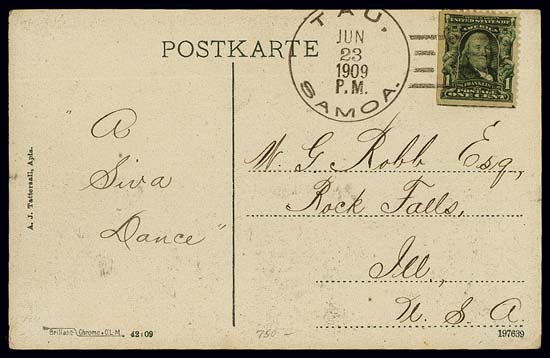 POSTKARTE
TAU,
JUN
23
1909
P.M.
SAMOA.
UNITED STATES OF
AMERICA
1 1
FRANKLIN
POSTAGE
ONE CENT
"A
Siva
Dance"
W. G. Robb Esq,
Rock Falls,
Ill.,
U. S. A.
A. J. Tattersall, Apia.
Brillant Chrome • O.L.M. 42:09
750 —
197639